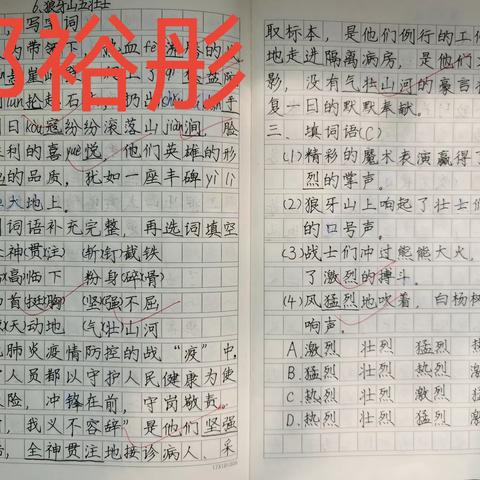 6.狼牙山五壮士
写 词
带领下 血fèi沸腾的
崖 阶
lūn抡起石 扔出
日kòu寇纷纷滚落山jiàn涧,脸
利的喜yuè悦,他们英雄的形
的品质,犹如一座丰碑yì lì
大地上。
词语补充完整,再选词填空
神(贯)注 (斩)钉截铁
(高)临下 粉身(碎)骨
首(挺)胸 (坚)强不屈
天动地 (气)壮山河
肺炎疫情防控的战“疫”中,
人员都以守护人民健康为使
险,冲锋在前,守岗敬责。
前,我义不容辞”是他们坚强
全神贯注地接诊病人、采
邓裕彤
取标本,是他们例行的工作
地走进隔离病房,是他们
影,没有气壮山河的豪言
复一日的默默奉献。
三、填词语(C)
(1)精彩的魔术表演赢得了
烈的掌声。
(2)狼牙山上响起了壮士们
的口号声。
(3)战士们冲过熊熊大火,
了激烈的搏斗。
(4)风猛烈地吹着,白杨树
响声。
A.激烈 壮烈 猛烈 热
B.猛烈 壮烈 热烈 激
C.热烈 壮烈 激烈 猛
D.热烈 壮烈 猛烈 激